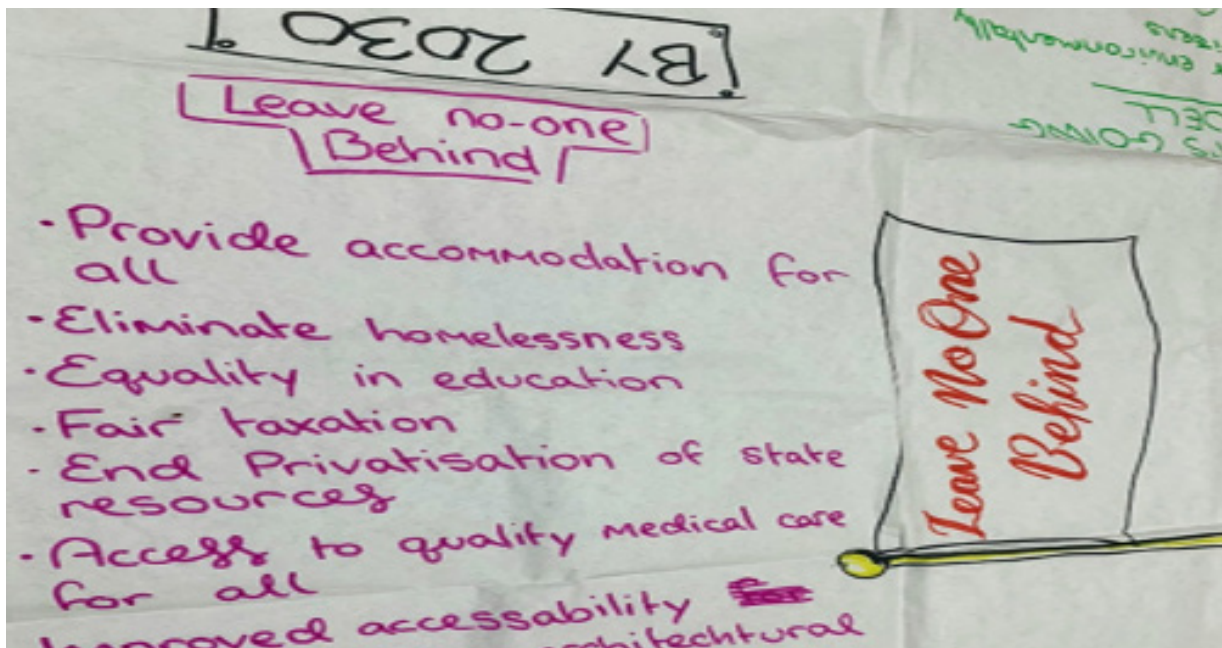 BY 2030
Leave no-one
Behind
• Provide accommodation for
all
• Eliminate homelessness
• Equality in education
• Fair taxation
• End Privatisation of state
resources
• Access to quality medical care
for all
Improved accessability
architechtural
Leave No One
Behind
environmentally
GOING